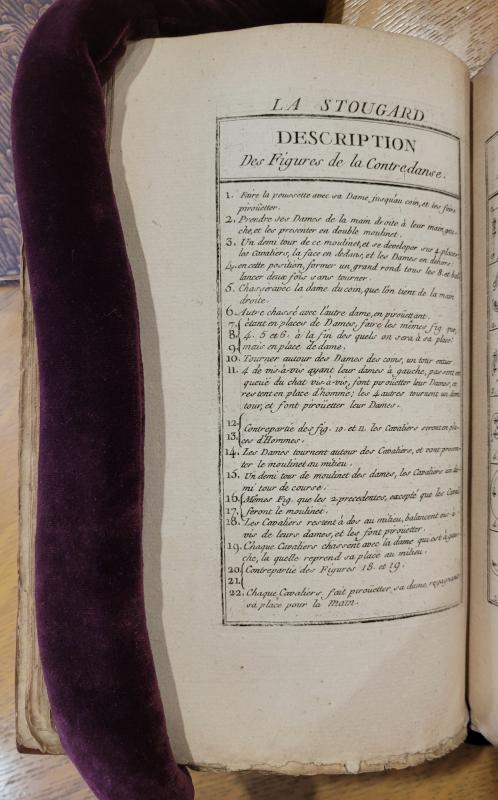 LA STOUGARD
DESCRIPTION
Des Figures de la Contredanse.
1. Faire la poussette avec sa Dame, jusqu'au coin, et les faire
piroüetter.
2. Prendre ses Dames de la main droite à leur main gau-
che, et les presenter en double moulinet.
3. Un demi tour de ce moulinet, et se developer sur 4 places
les Cavaliers, la face en dedans, et les Dames en dehors;
4. en cette position, former un grand rond tous les 8. et bal-
lancer deux fois sans tourner.
5. Chasser avec la dame du coin, que l'on tient de la main
droite.
6. Autre chassé avec l'autre dame, en piroüettant.
7. étant en places de Dames, faire les mêmes fig. que,
8. 4. 5 et 6. à la fin des quels on sera à sa place:
9. mais en place de dame.
10. Tourner autour des Dames des coins, un tour entier.
11. 4 de vis-à-vis ayant leur dames à gauche, passent en
queuë du chat vis-à-vis, font piroüetter leur Dames, et
restent en place d'homme; les 4 autres tournent un demi
tour, et font piroüetter leur Dames.
12. Contrepartie des fig. 10. et 11. les Cavaliers seront en pla-
13. ces d'Hommes.
14. Les Dames tournent autour des Cavaliers, et vont presen-
ter le moulinet au milieu.
15. Un demi tour de moulinet des dames, les Cavaliers un de-
mi tour de course.
16. Mêmes Fig. que les 2 precedentes, excepté que les Caval.
17. feront le moulinet.
18. Les Cavaliers restent à dos au milieu, balancent vis-à
vis de leurs dames, et les font piroüetter.
19. Chaque Cavaliers chassent avec la dame qui est à gau-
che, la quelle reprend sa place au milieu.
20. Contrepartie des Figures 18. et 19.
21.
22. Chaque Cavaliers fait piroüetter, sa dame, regagnant
sa place pour la main.